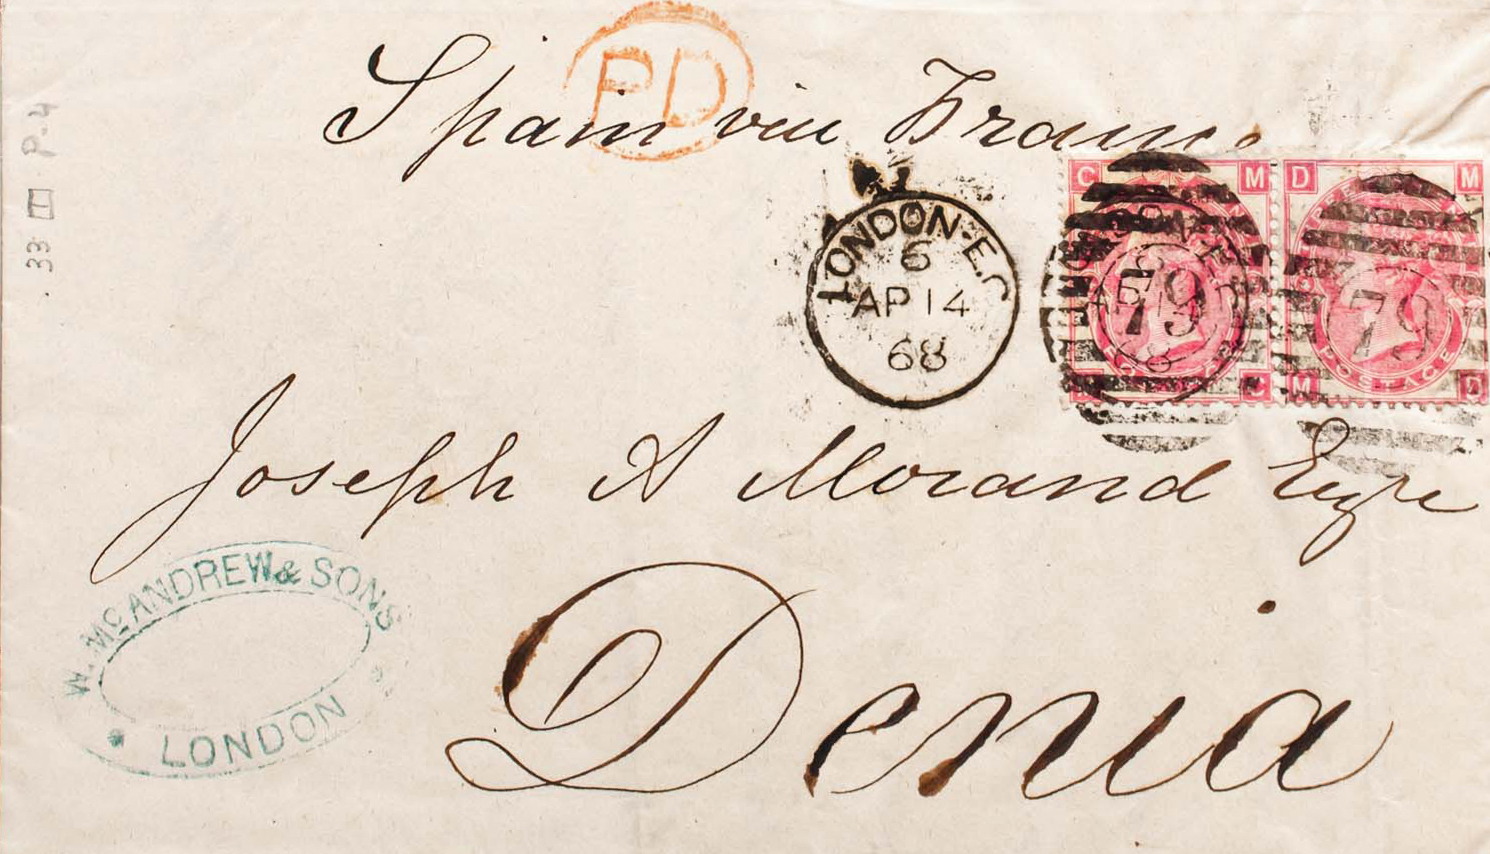 PD
Spain via France
LONDON·E.C
6
AP 14
68
C M
79
D M
79
POSTAGE
M D
Joseph A Morand Esqre
W. Mc ANDREW & SONS
LONDON
Denia
33 P.4